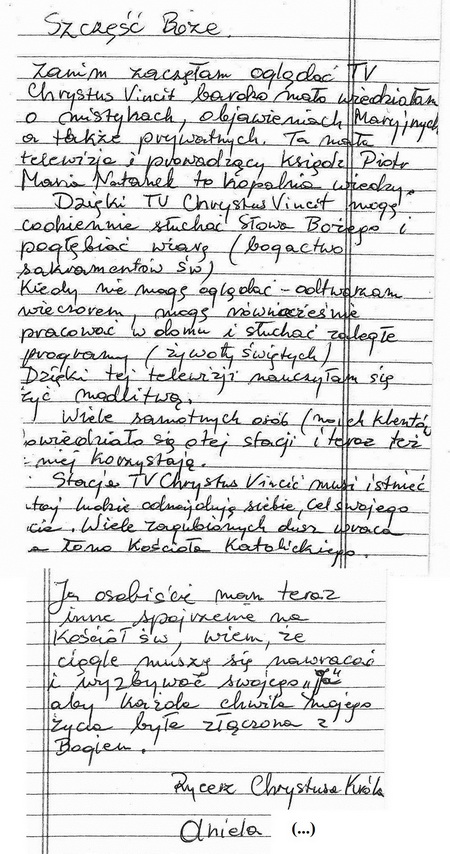 Szczęść Boże.
Zanim zaczęłam oglądać TV
Chrystus Vincit bardzo mało wiedziałam
o mistykach, objawieniach Maryjnych
a także prywatnych. Ta mała
telewizja i prowadzący Ksiądz Piotr
Maria Natanek to kopalnia wiedzy.
Dzięki TV Chrystus Vincit mogę
codziennie słuchać Słowa Bożego i
pogłębiać wiarę (bogactwo
sakramentów św)
Kiedy nie mogę oglądać - odtwarzam
wieczorem, mogę równocześnie
pracować w domu i słuchać zaległe
programy (żywoty świętych)
Dzięki tej telewizji nauczyłam się
żyć modlitwą.
Wiele samotnych osób (moich klientów
owiedziało się o tej stacji i teraz też
niej korzystają.
Stacja TV Chrystus Vincit musi istnieć
taj ludzie odnajdują siebie, cel swojego
cia. Wiele zagubionych dusz wraca
a łono Kościoła Katolickiego.
Ja osobiście mam teraz
inne spojrzenie na
Kościół św, wiem, że
ciągle muszę się nawracać
i wyzbywać swojego „Ja"
aby każda chwila mojego
życia była złączona z
Bogiem.
Rycerz Chrystusa Króla
Aniela (...)